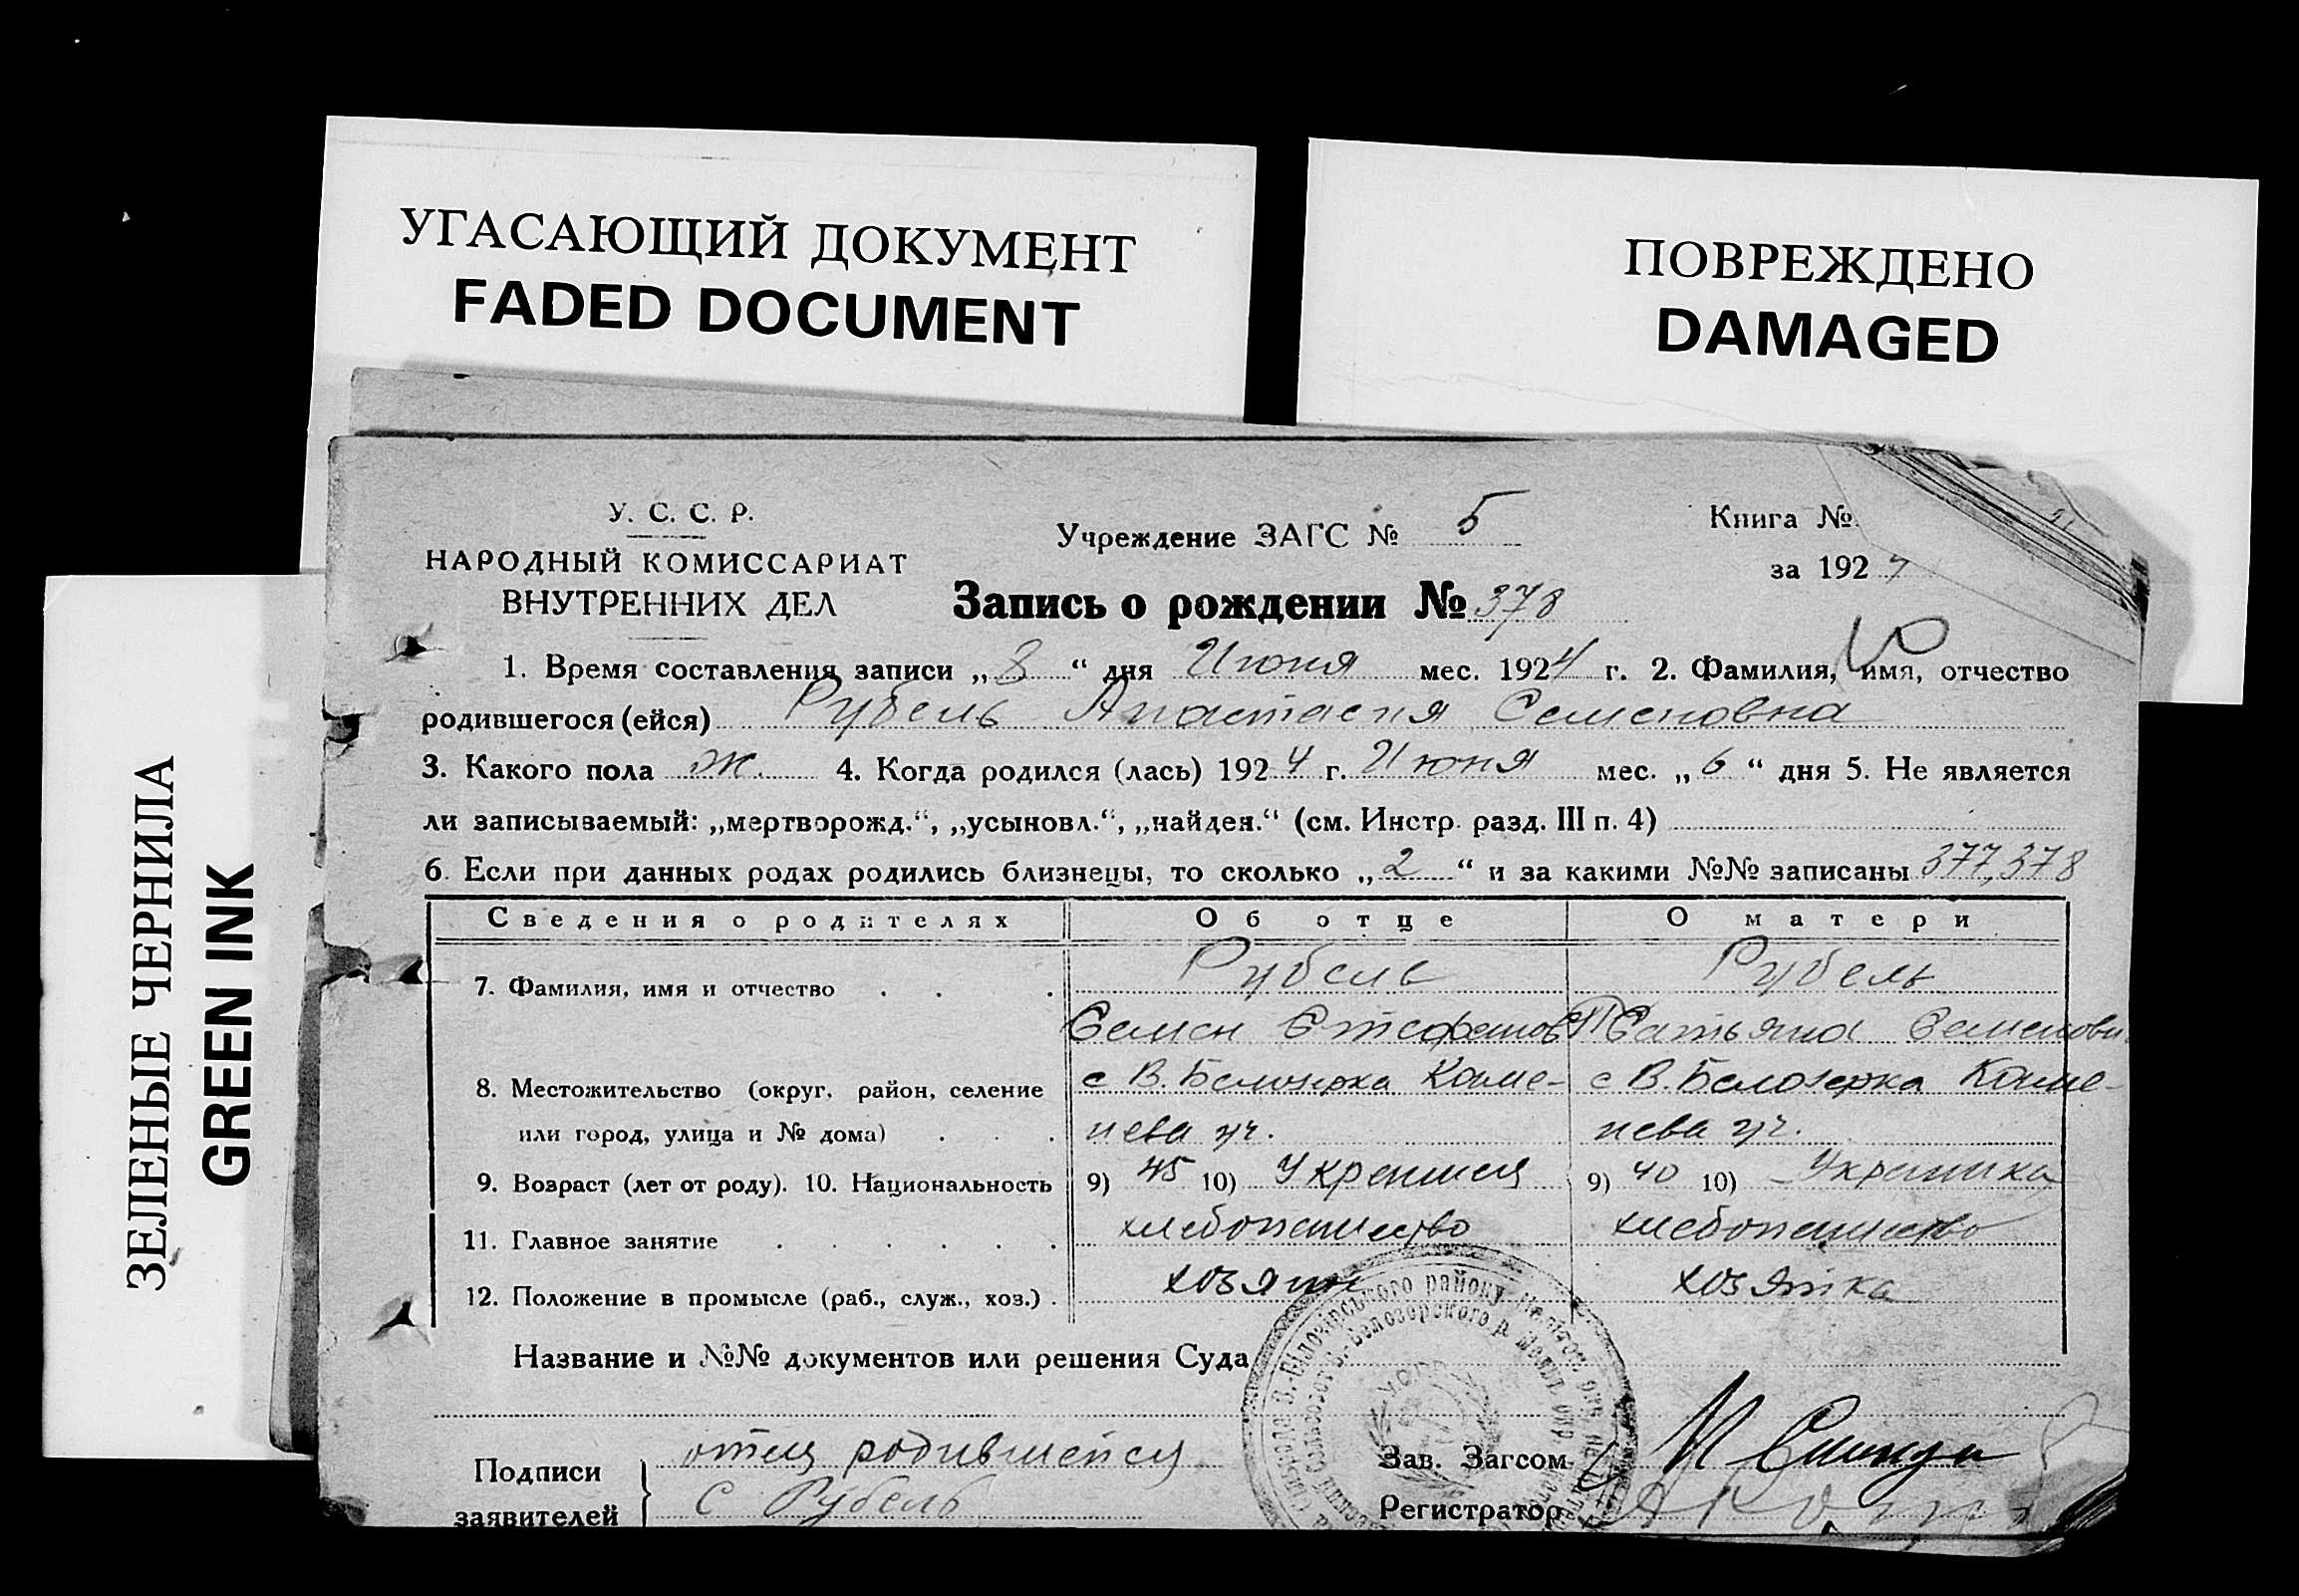 УГАСАЮЩИЙ ДОКУМЕНТ
FADED DOCUMENT
ПОВРЕЖДЕНО
DAMAGED
ЗЕЛЕНЫЕ ЧЕРНИЛА
GREEN INK
У. С. С. Р.
НАРОДНЫЙ КОМИССАРИАТ
ВНУТРЕННИХ ДЕЛ
Учреждение ЗАГС № 5
Книга №
за 1924
Запись о рождении № 378
1. Время составления записи „8“ дня Июня мес. 1924 г. 2. Фамилия, имя, отчество
родившегося (ейся) Рубель Анастасия Семеновна
3. Какого пола ж. 4. Когда родился (лась) 1924 г. Июня мес. „6“ дня 5. Не является
ли записываемый: „мертворожд.“, „усыновл.“, „найден.“ (см. Инстр. разд. III п. 4)
6. Если при данных родах родились близнецы, то сколько „2“ и за какими №№ записаны 377, 378
Сведения о родителях Об отце О матери
7. Фамилия, имя и отчество Рубель Рубель
Семен Стефанов Татьяна Семеновн
8. Местожительство (округ, район, селение с В. Белозерка Каме- с В. Белозерка Каме-
или город, улица и № дома) нева уч. нева уч.
9. Возраст (лет от роду). 10. Национальность 9) 45 10) Украинец 9) 40 10) Украинка
11. Главное занятие хлебопашество хлебопашество
12. Положение в промысле (раб., служ., хоз.) хозяин хозяйка
Название и №№ документов или решения Суда
Подписи отец родившейся Зав. Загсом
заявителей С Рубель Регистратор